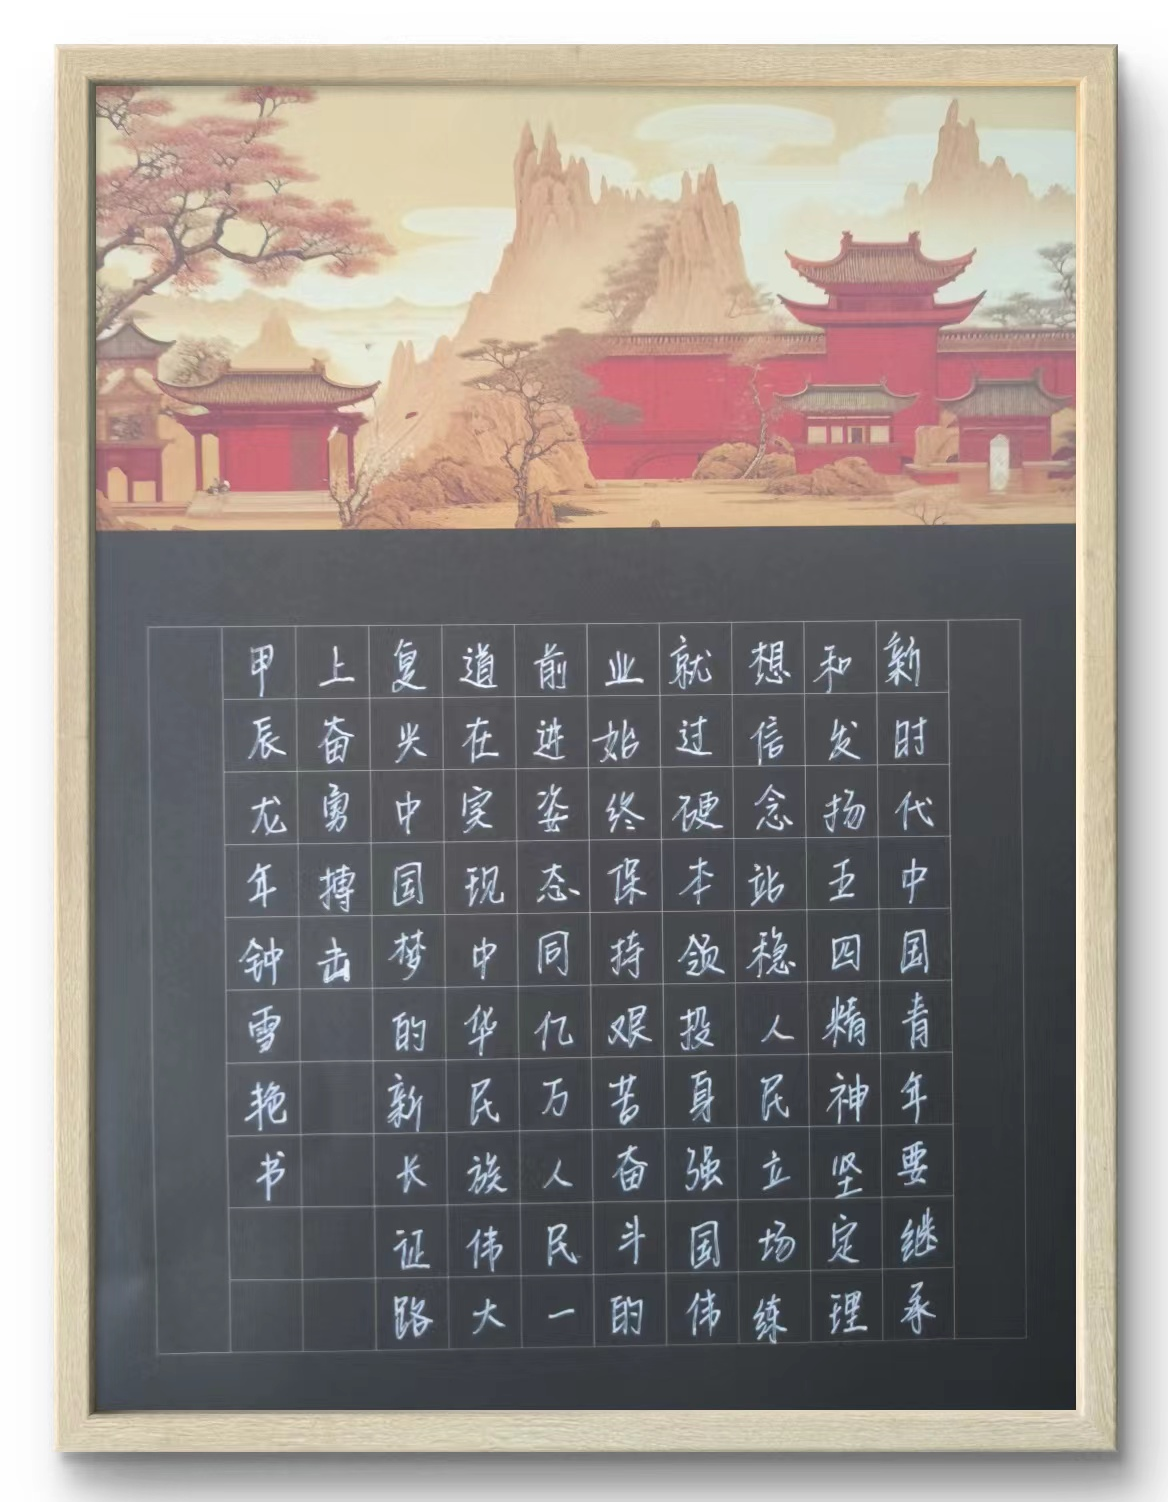 新时代中国青年要继承
和发扬五四精神坚定理
想信念站稳人民立场练
就过硬本领投身强国伟
业始终保持艰苦奋斗的
前进姿态同亿万人民一
道在实现中华民族伟大
复兴中国梦的新长证路
上奋勇搏击
甲辰龙年钟雪艳书